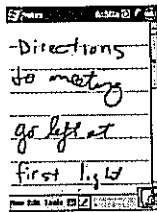 Notes
-Directions
to meeting
go left at
first light
New Edit Tools